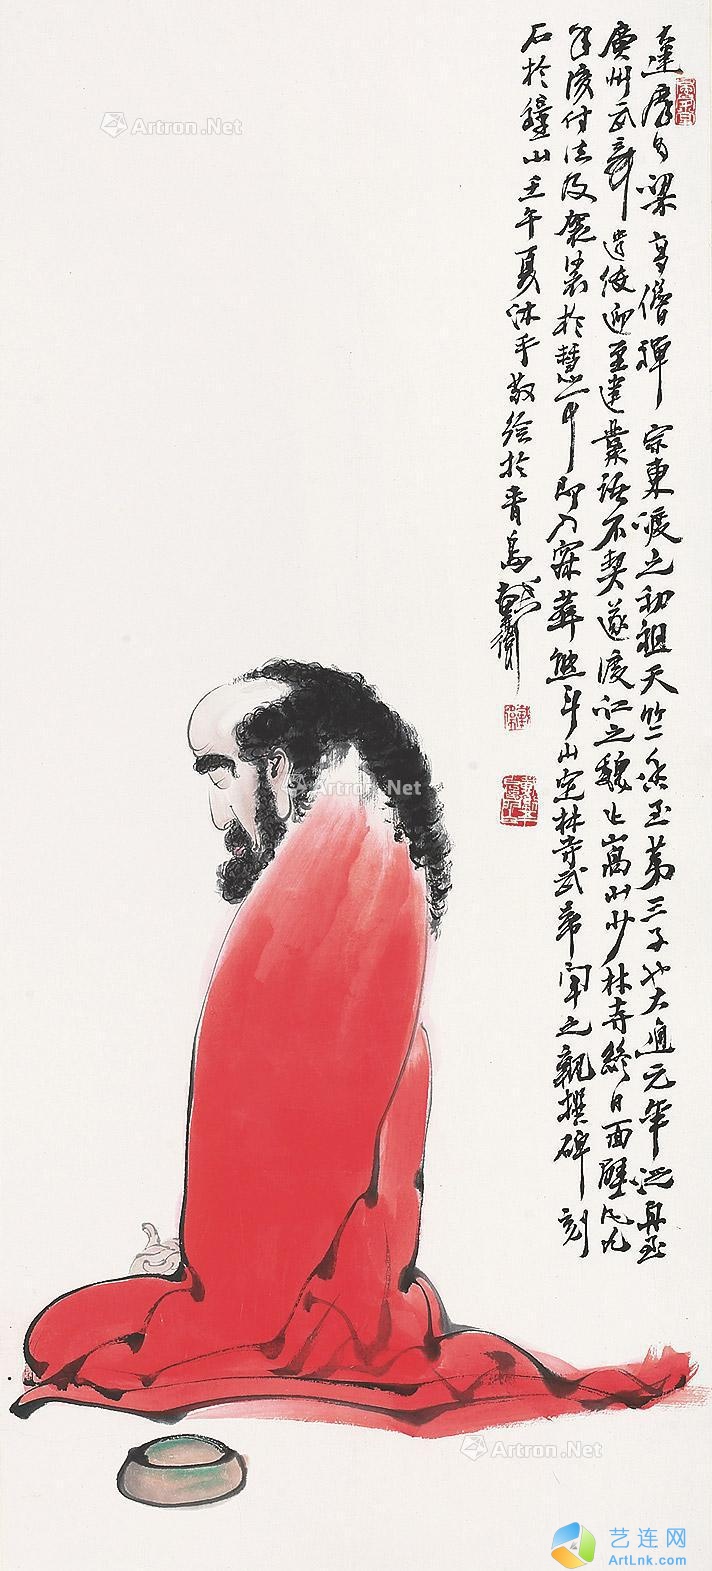 達磨為梁高僧禪宗東渡之初祖天竺香王第三子也大通元年泛舟至
廣州武帝遣使迎至建業語不契遂渡江之魏止嵩山少林寺終日面壁凡九
年後付法及袈裟於慧可即入寂葬熊耳山定林寺武帝聞之親撰碑刻
石於鐘山壬午夏沐手敬繪於青島戴衛
Artron.Net
Artron.Net
Artron.Net
艺连网
ArtLnk.com